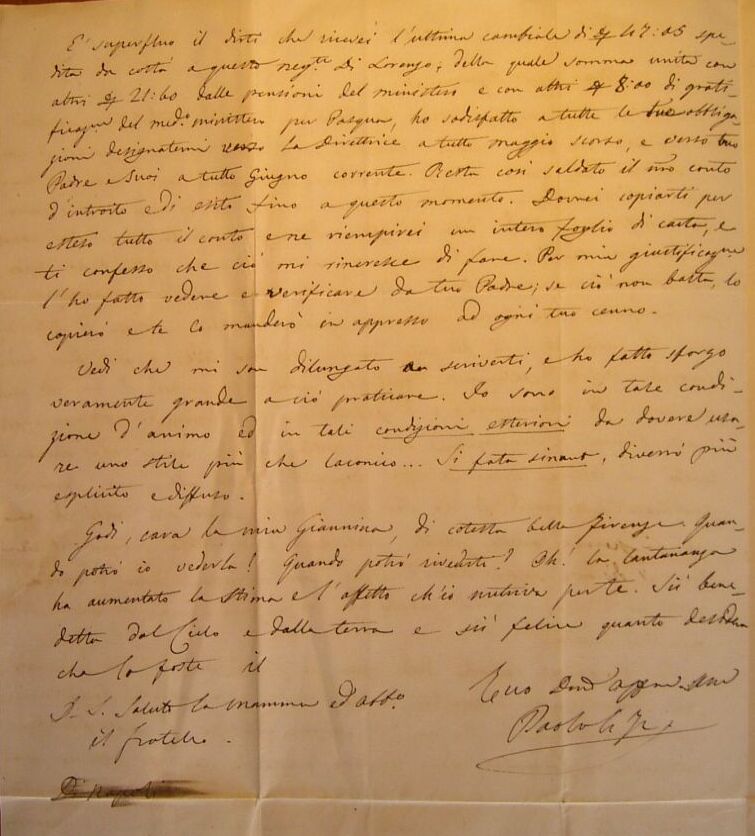 E' superfluo il dirti che ricevei l'ultima cambiale di 47:05 spe-
dita da costà a questo neg.te Di Lorenzo; della quale somma unita con
altri 21:60 delle pensioni del ministero e con altri 8:00 di grati-
ficaz.ne del med.o ministero per Pasqua, ho sodisfatto a tutte le tue obbliga-
zioni designatemi verso La Direttrice a tutto maggio scorso, e verso tuo
Padre e Suoi a tutto Giugno corrente. Resta così saldato il nro conto
d'introito e di esito fino a questo momento. Dovrei copiarti per
esteso tutto il conto e ne riempirei un intero foglio di carta, e
ti confesso che ciò mi rincresce di fare. Per mia giustificazne
l'ho fatto vedere e verificare da tuo Padre; se ciò non basta, lo
copierò e te lo manderò in appresso ad ogni tuo cenno.
Vedi che mi son dilungato a scriverti, e ho fatto sforzo
veramente grande a ciò praticare. Io sono in tale condi-
zione d'animo ed in tali condizioni esteriori da dovere usa-
re uno stile più che laconico... Si fata sinant, diverrò più
esplicito e diffuso.
Godi, cara la mia Giannina, di cotesta bella Firenze. Quan-
do potrò io vederla! Quando potrò rivederti? Oh! la lontananza
ha aumentato la stima e l'affetto ch'io nutriva per te. Sii bene-
detta dal Cielo e dalla terra e sii felice quanto desidera
che lo fosti il
P. S. Saluto la mamma ed abb.o
il fratello.
Tuo
Di Napoli